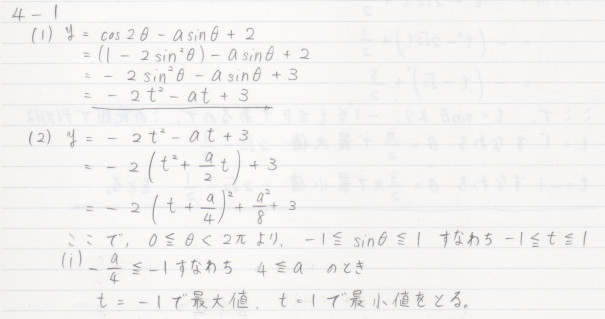 4 - 1
(1) y = cos 2θ - a sin θ + 2
= (1 - 2 sin²θ) - a sin θ + 2
= - 2 sin²θ - a sin θ + 3
= - 2t² - at + 3
(2) y = - 2t² - at + 3
= - 2 ( t² + a/2 t ) + 3
= - 2 ( t + a/4 )² + a²/8 + 3
ここで、0 ≦ θ < 2π より、 -1 ≦ sin θ ≦ 1 すなわち -1 ≦ t ≦ 1
(i) - a/4 ≦ -1 すなわち 4 ≦ a のとき
t = -1 で最大値、t = 1 で最小値をとる。